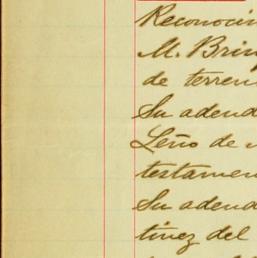 Reconocin
M. Brin
de terren
Su adend
Leño de
testamen
Su adend
tinez del